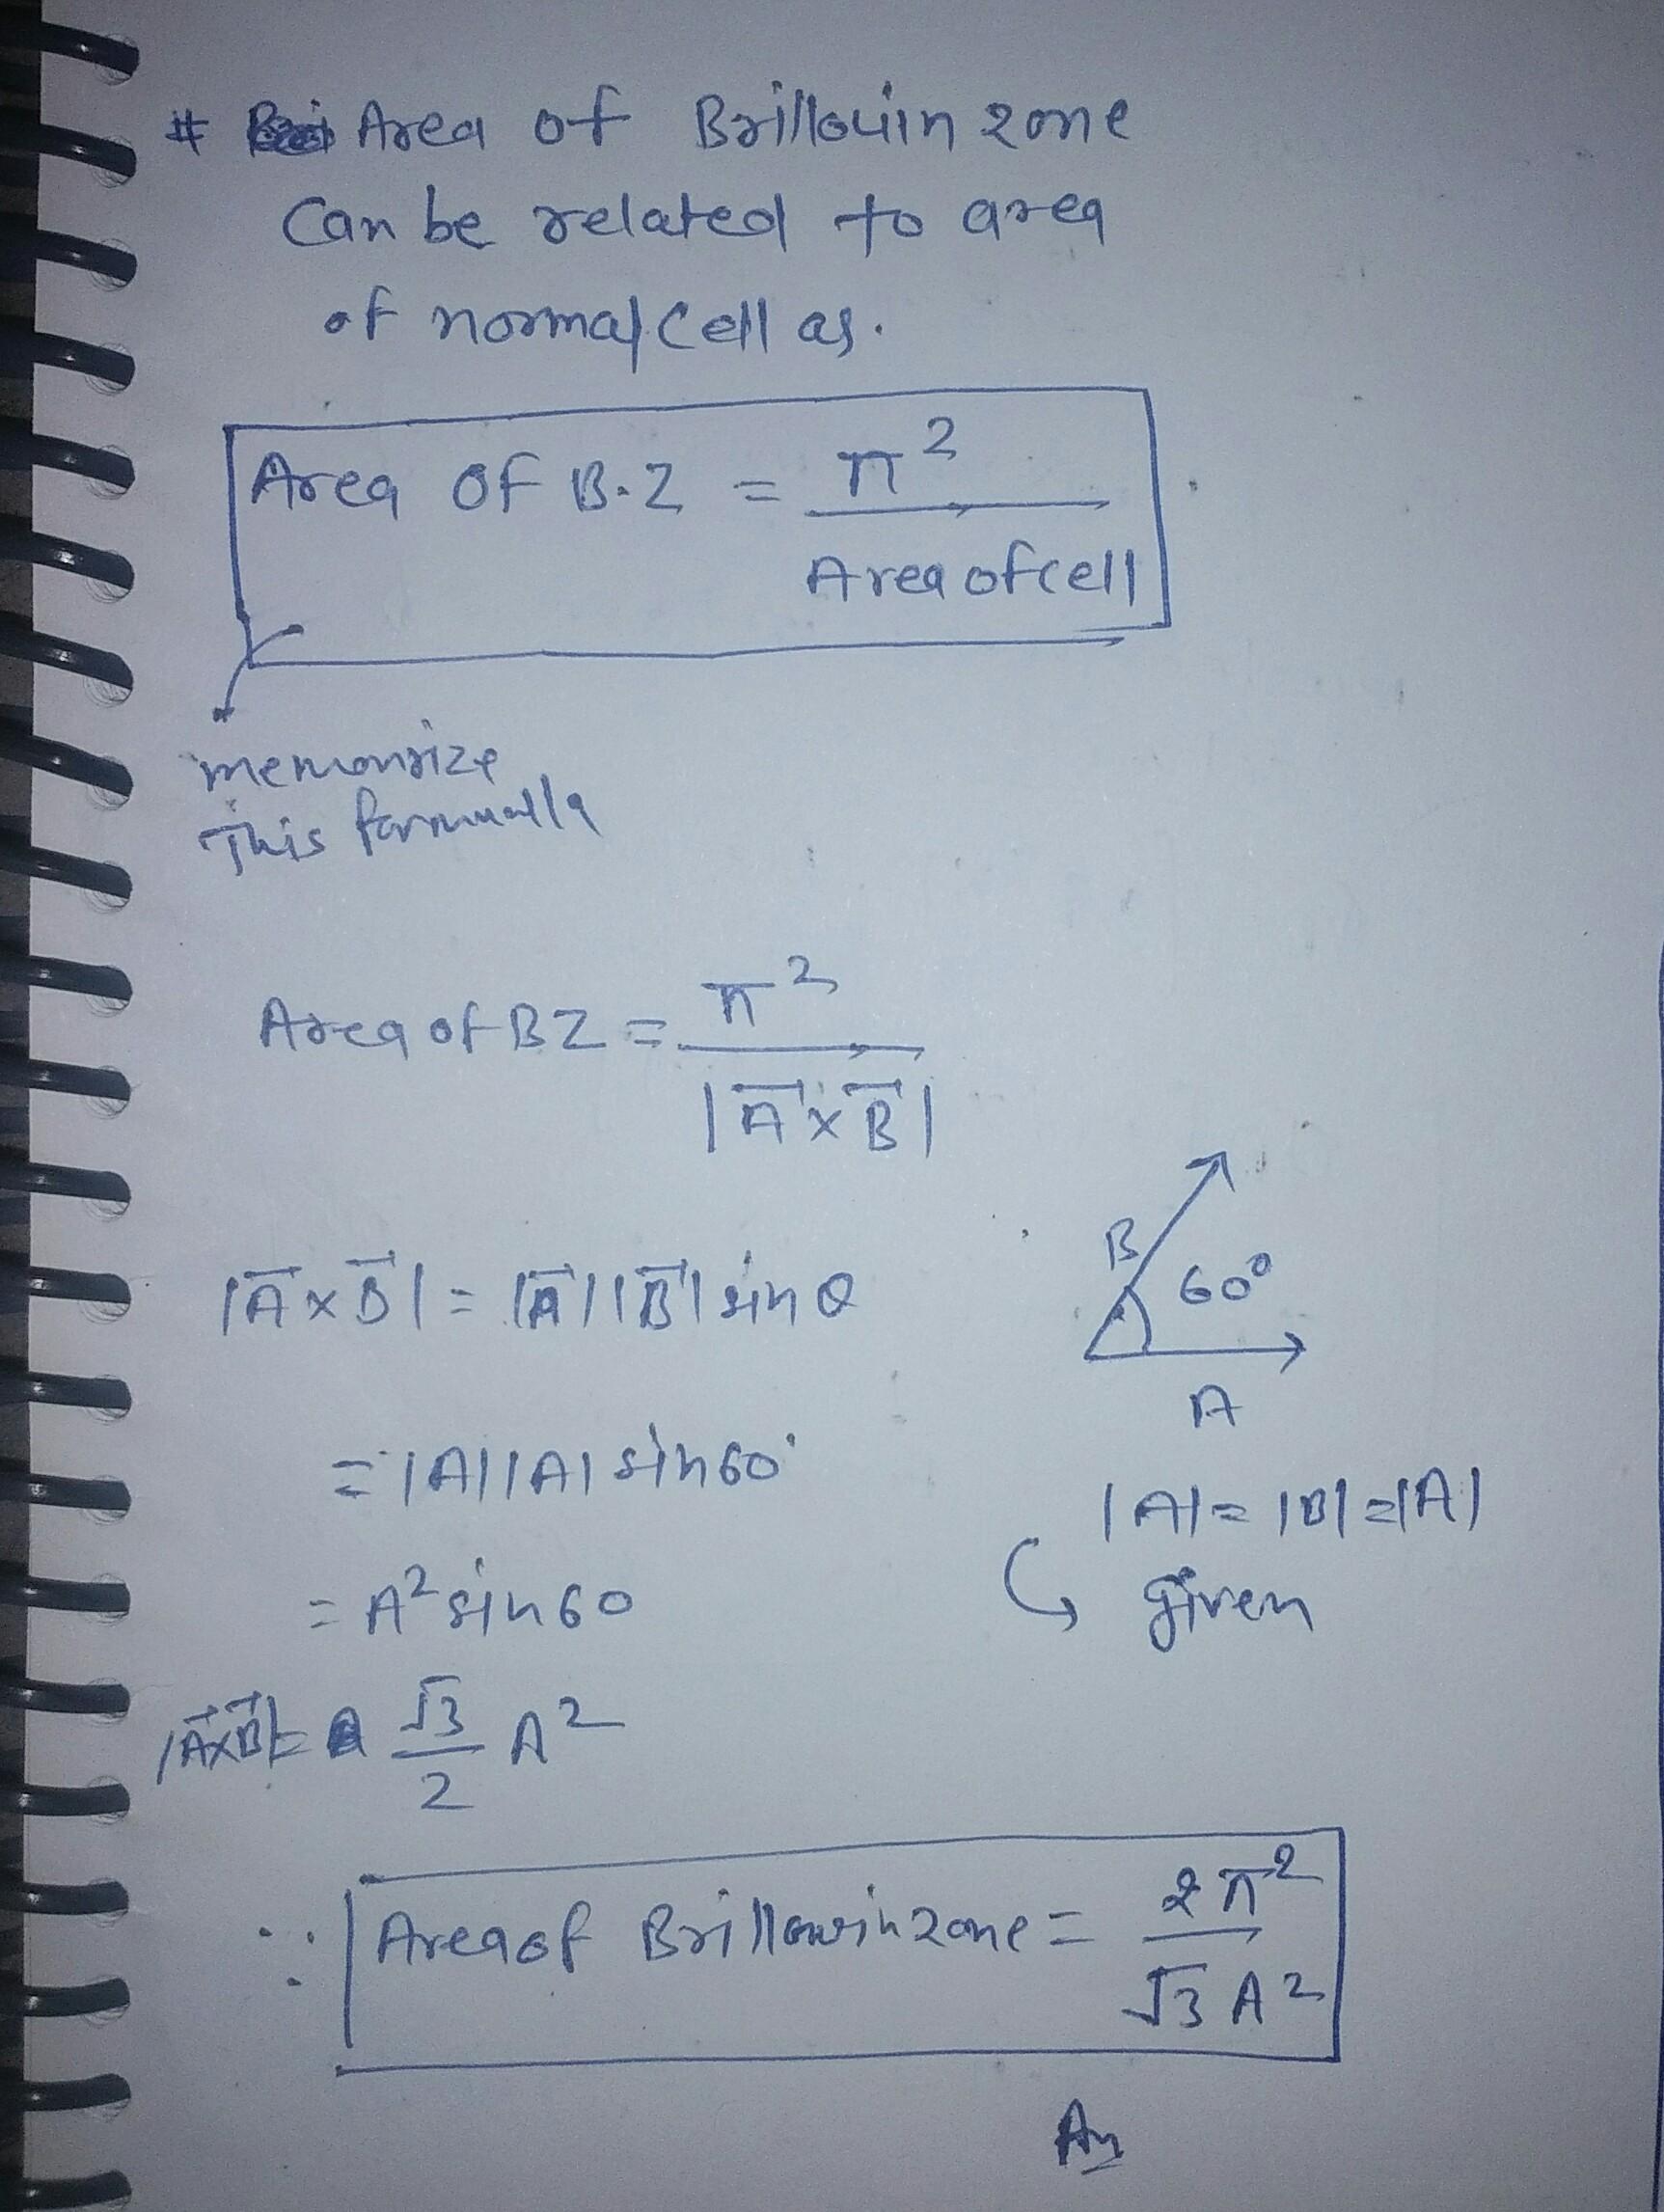 # Area of Brillouin zone
Can be related to area
of normal cell as.
Area of B.Z = π²
Area of cell
memorize
This formulla
Area of BZ = π²
|A⃗ × B⃗|
|A⃗ × B⃗| = |A⃗| |B⃗| sin θ
B 60°
A
= |A| |A| sin 60°
|A| = |B| = |A|
= A² sin 60
given
|A⃗×B⃗| = √3/2 A²
∴ Area of Brillouin zone = 2π²
√3 A²
An